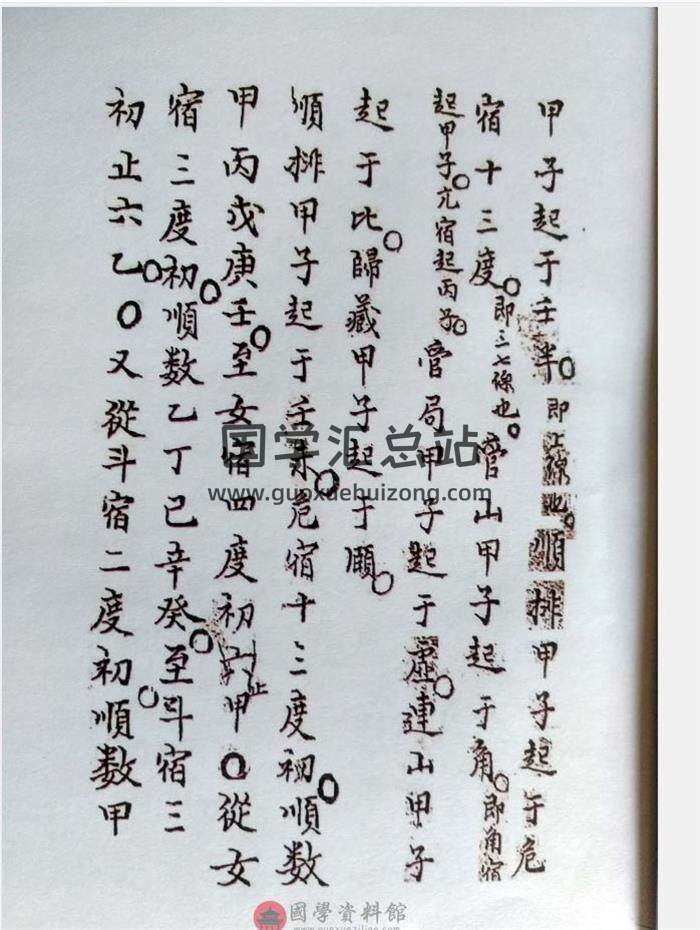 甲子起于壬半。即正線也。順排甲子起于危
宿十三度。即三七線也。管山甲子起于角。即角宿
起甲子。亢宿起丙子。管局甲子起于虛。連山甲子
起于比。歸藏甲子起于願。
順排甲子起于壬末。危宿十三度初。順数
甲丙戊庚壬。至女宿四度初止甲。〇從女
宿三度初。順数乙丁巳辛癸。至斗宿三
初止六乙。〇又從斗宿二度初。順数甲
国学汇总站
www.guoxuehuizong.com
國學資料館
www.guoxueziliao.com